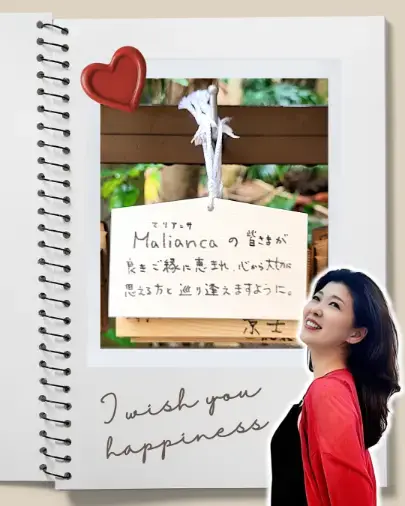 マリアンサ
Maliancaの皆さまが
良きご縁に恵まれ、心から大切に
思える方と巡り逢えますように。
I wish you
happiness